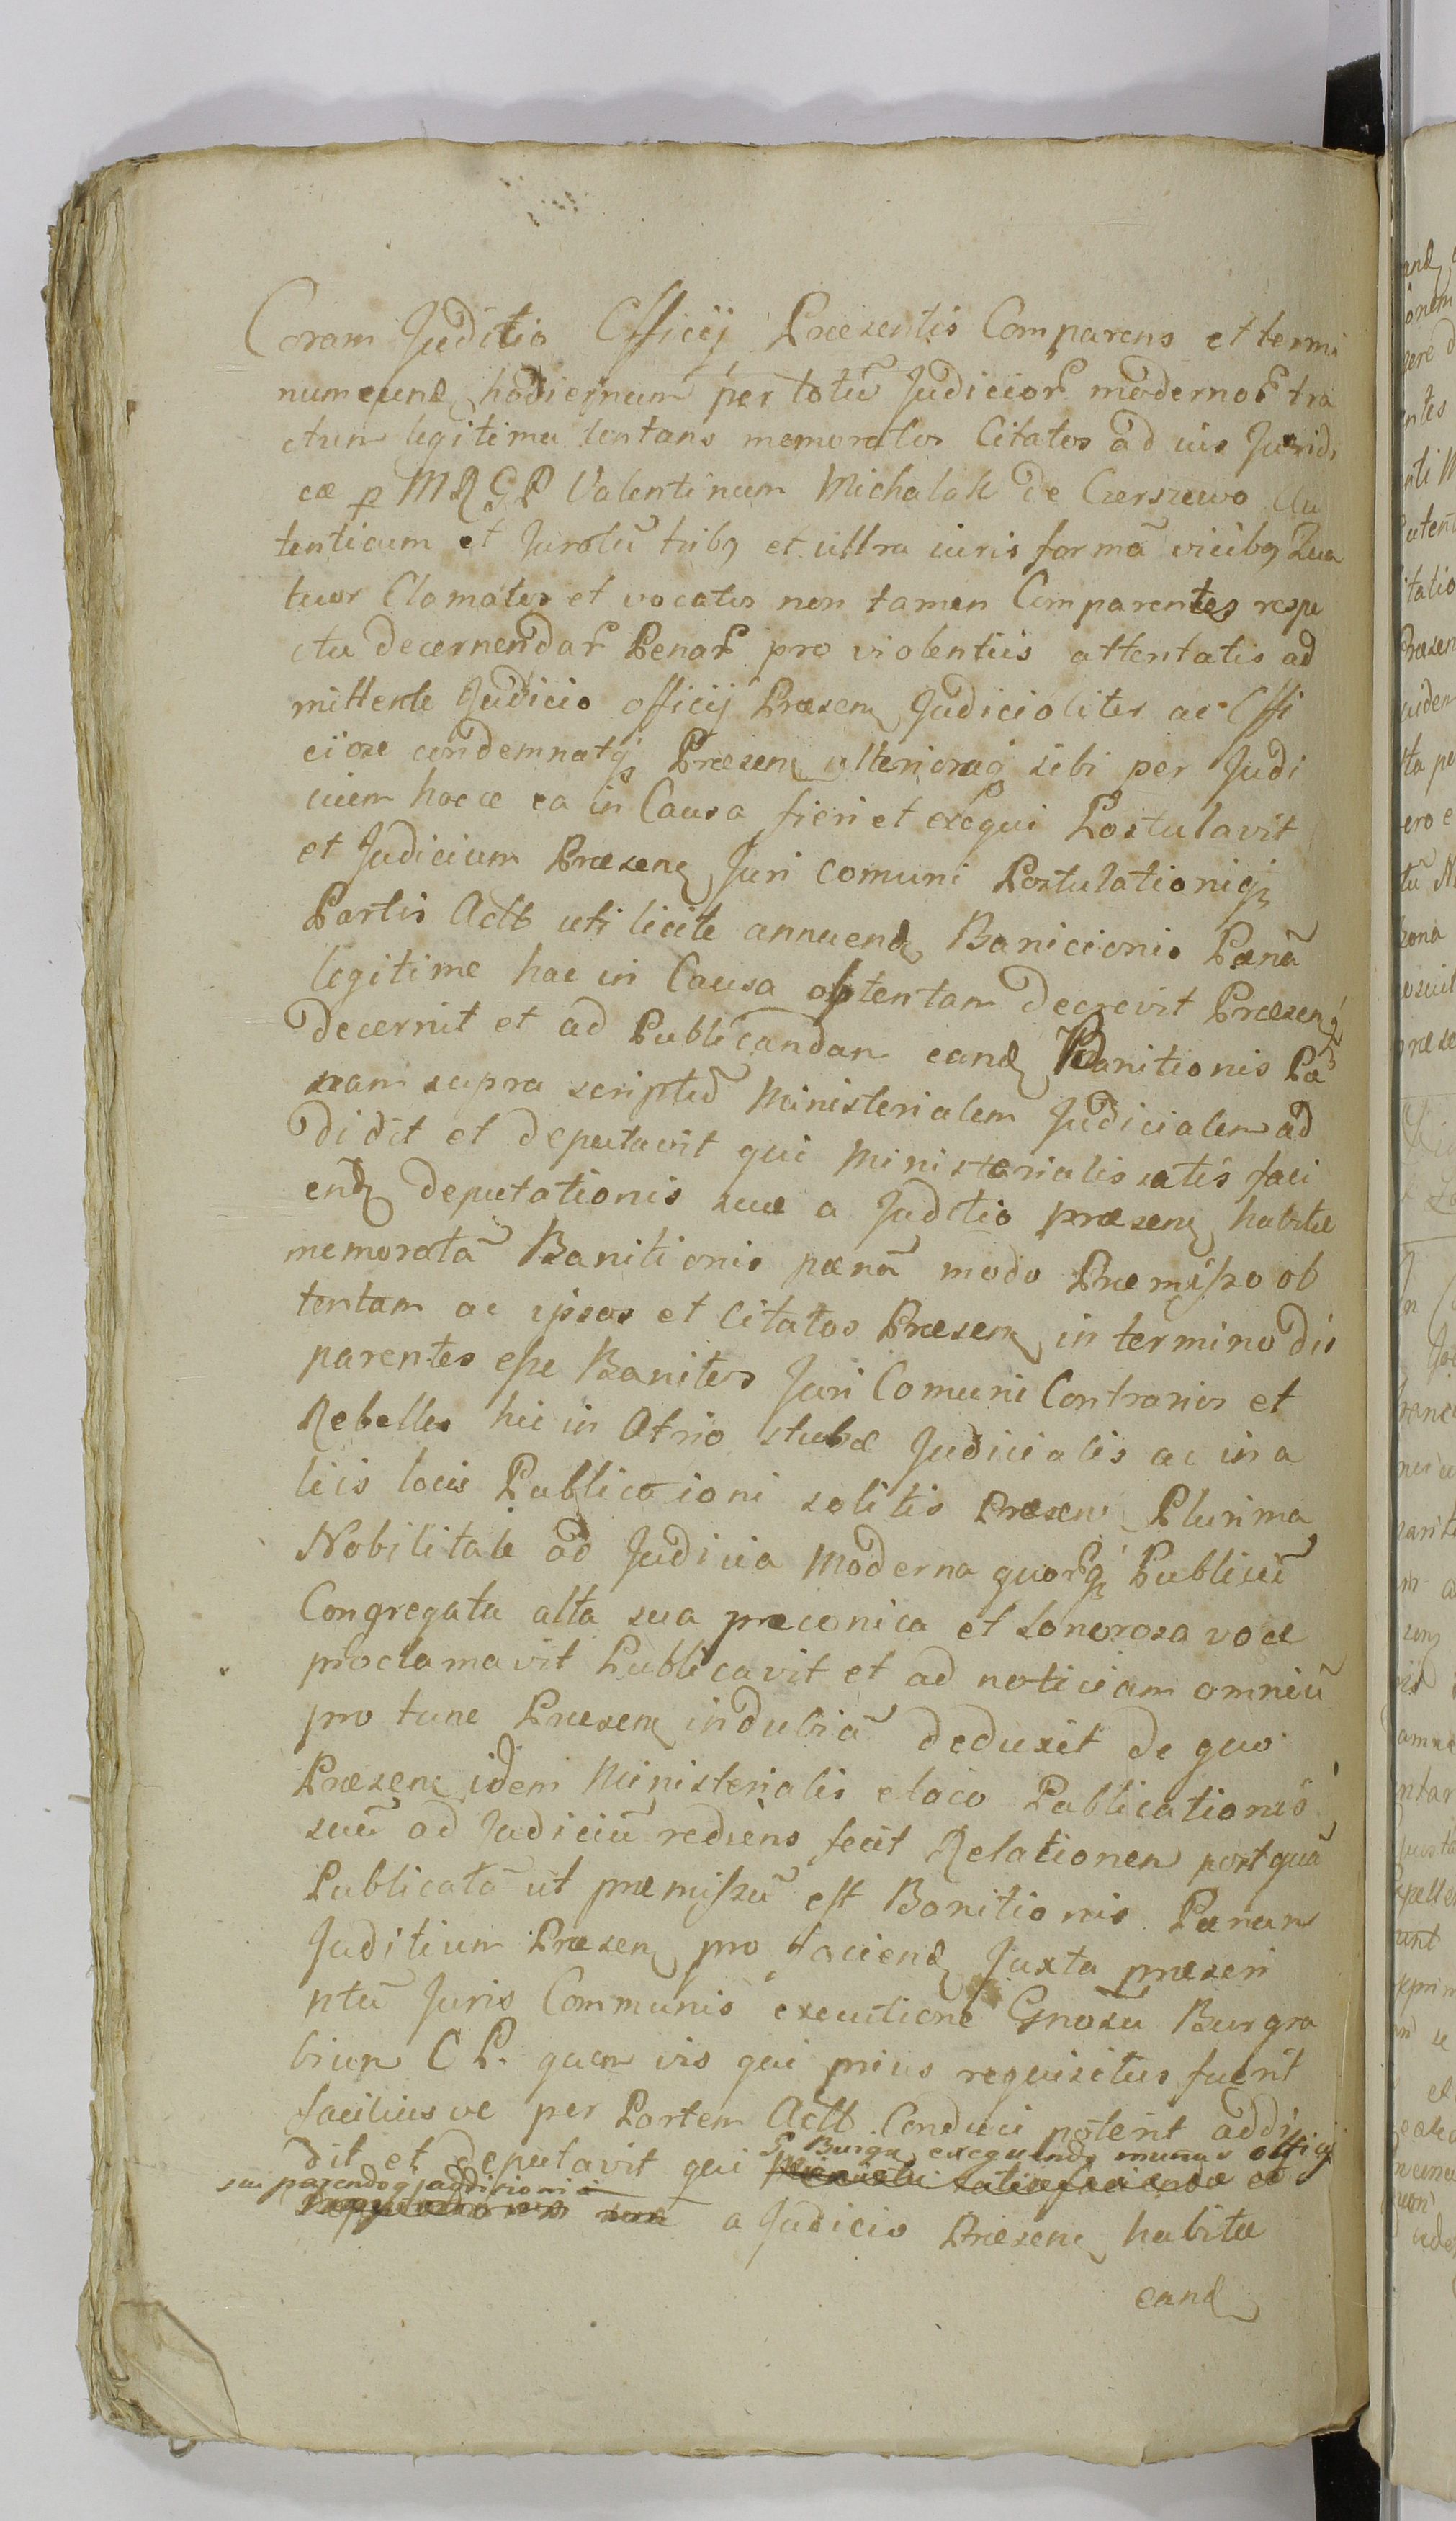 Coram Juditio Officij Præsentis Comparens et termi
num eund hodiernum per totũ Judicior modernor tra
ctum legitime tentans memoratos Citatos ad uis Juridi
cæ p MRGP Valentinum Michalak de Czerszewo Au
tenticum et Juratũ tribq et ultra iuris formã vicibq Qua
tuor Clamatos et vocatos non tamen Comparentes respe
ctu decernendar Penar pro violentiis attentatis ad
mittente Judicio officij Præsen Judicialiter ac Offi
ciose condemnatq Præsen ulterioraq sibi per Judi
cium hocce ea in Causa fieri et exequi Postulavit
et Judicium Præsens Juri comuni Postulationiq
Partis Actb uti licite annuend Banicionis Pænã
legitime hac in Causa obtentam decrevit Præsenq
decernit et ad Publicandam eand Banitionis Pæ
nam supra scriptũ Ministerialem Judicialem ad
didit et deputavit qui Ministerialis satis faci
end deputationis suæ a Juditio præsen habitæ
memoratã Banitionis pænã modo Præmisso ob
tentam ac ipsos et Citatos Præsen in termino dis
parentes esse Banitos Juri Comuni Contrarios et
Rebelles hic in Atrio stubæ Judicialis ac in a
liis locis Publicationi solitis Præsen Plurima
Nobilitate ad Judicia Moderna quorq Publicũ
Congregata alta sua præconica et sonorosa voce
proclamavit Publicavit et ad noticiam omniũ
pro tunc Præsen indubiã deduxit de quo
Præsens idem Ministerialis e loco Publicationis
suũ ad Judiciũ rediens fecit Relationem postquã
Publicatã ut præmissũ est Banitionis Pænam
Juditium Præsen pro faciend Juxta præscri
ptũ Juris Communis executione Gnosũ Burgra
bium C P. quem vis qui prius requisitus fuerit
facilius ve per Partem Actb Conduci poterit addi
dit et deputavit qui G Burgr exequendo munus officij
sui parendoq additioni a Judicio Præsen habitæ
eand